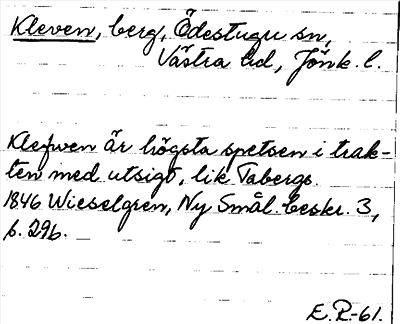 Kleven, berg, Ödestugu sn,
Västra hd, Jönk. l.
Klefwen är högsta spetsen i trak-
ten med utsigt, lik Tabergs.
1846 Wieselgren, Ny Smål. beskr. 3,
s. 296.
E.R-61.